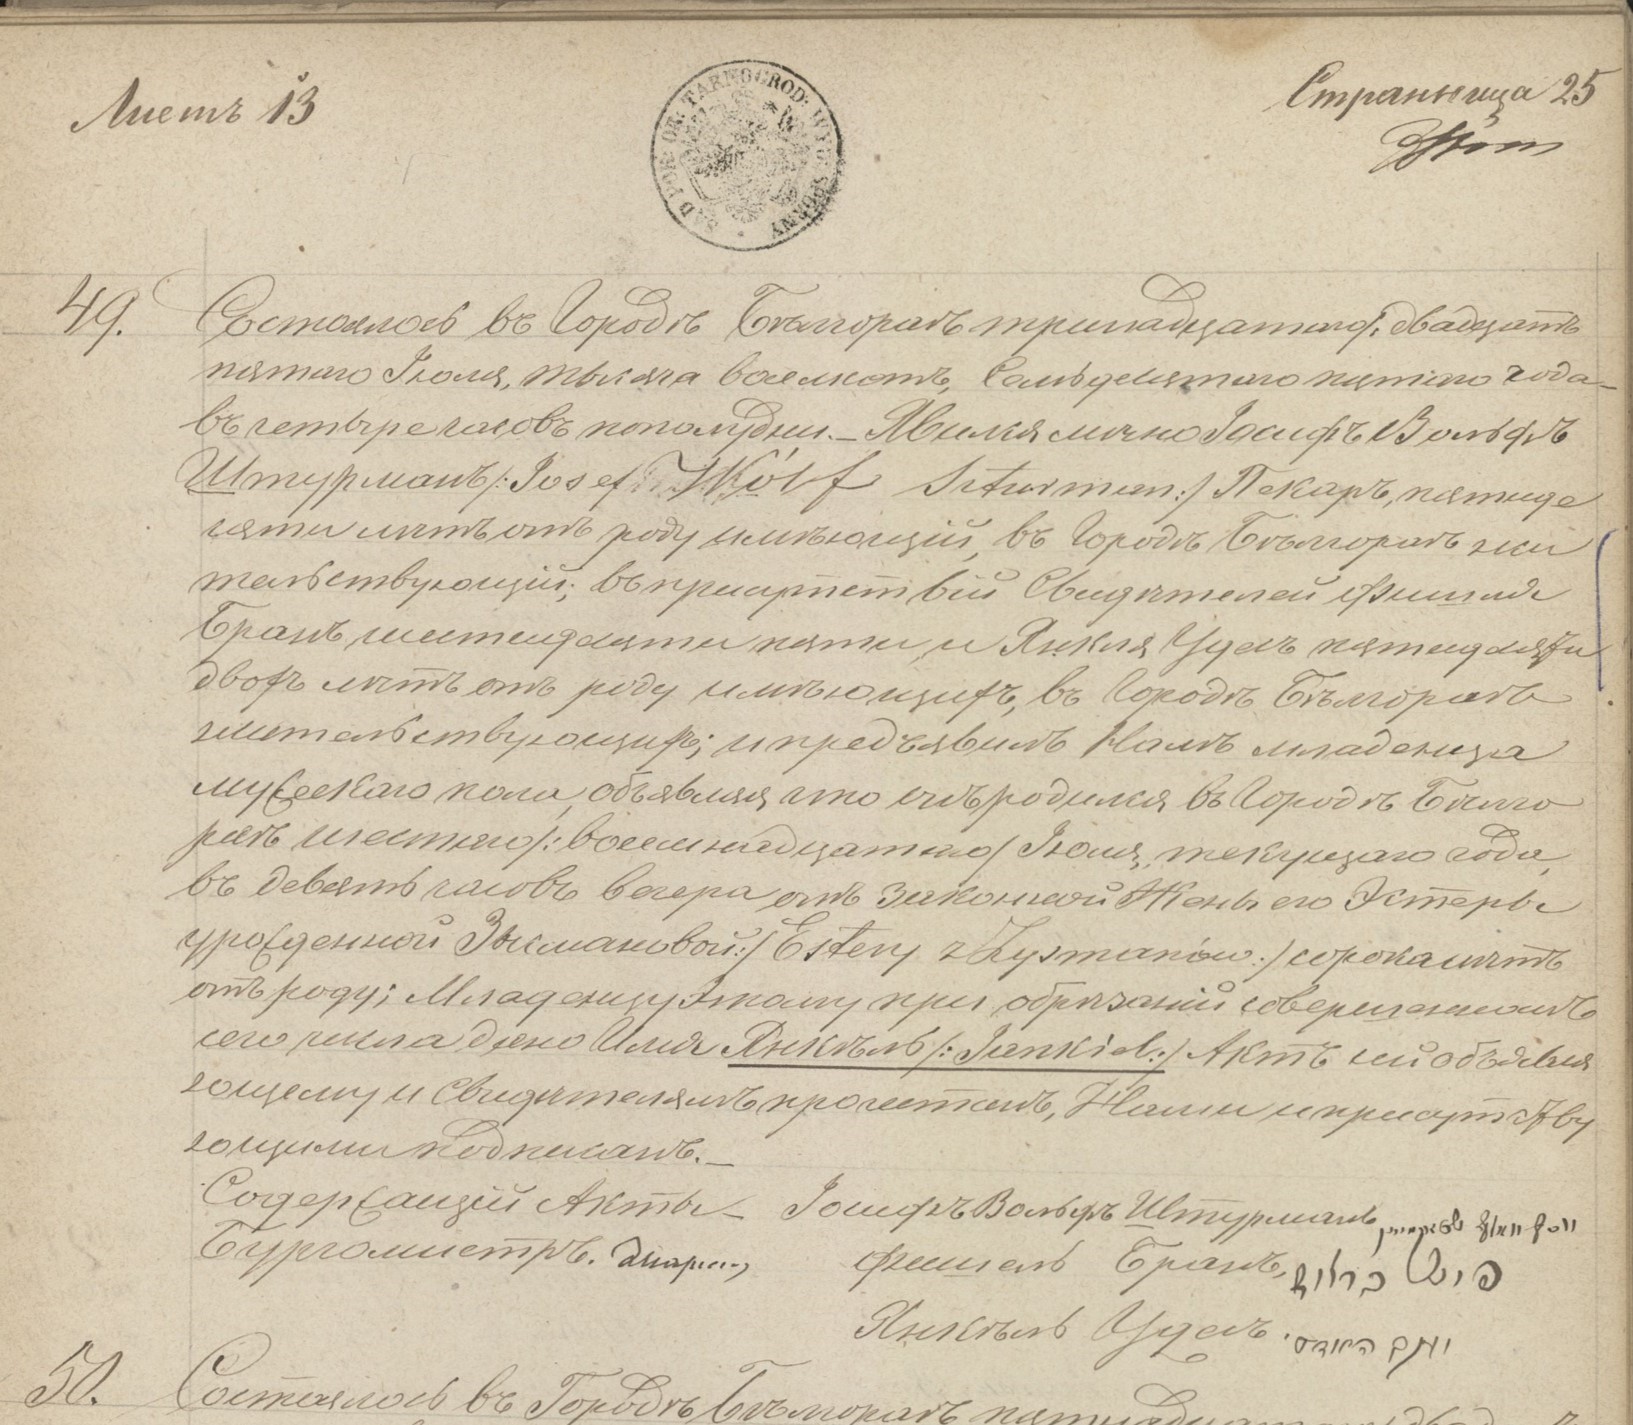 Листъ 13
Страница 25
SĄD POK: OK: TARNOGROD:
49. Состоялось въ Городѣ Бѣлгораѣ тринадцатаго/: двадцать
пятаго Іюля, тысяча восемсотъ, Семьдесятаго пятаго года
въ четыре часовъ пополудни. — Явился лично Іосифъ Вольфъ
Штурманъ/: Josef Wólf Szturman:/ Пекарь, пятиде
сяти лѣтъ отъ роду имѣющій, въ Городѣ Бѣлгораѣ жи
тельствующій; въ присутствіи Свидѣтелей Фишля
Бранъ, шестидесяти пяти и Янкля Удель пятидесяти
двохъ лѣтъ отъ роду имѣющихъ, въ Городѣ Бѣлгораѣ
жительствующихъ; и предъявилъ Намъ младенца
мужескаго пола, объявляя что онъ родился въ Городѣ Бѣлго
раѣ шестаго/: восемнадцатаго/ Іюля, текущаго года,
въ девять часовъ вечера отъ законной Жены его Эстеры
урожденной Зысмановой:/ Estery z Zysmanów:/ сорока лѣтъ
отъ роду; Младенцу этому при обрѣзаніи совершенномъ
сего числа дано Имя Янкѣль/: Jankiel:/ Актъ сей объявля
ющему и Свидѣтелямъ прочитанъ, Нами и присутству
ющими подписанъ. —
Содержащій Акты — Іосифъ Вольфъ Штурманъ
Бургомистръ. Фишель Бранъ,
Янкѣль Удель.
50. Состоялось въ Городѣ Бѣлгораѣ